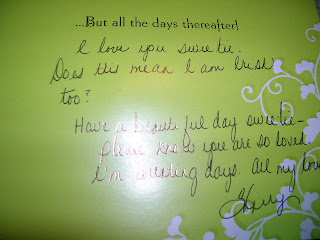 ...But all the days thereafter!
I love you sweetie.
Does this mean I am Irish
too?
Have a beautiful day sweetie-
please know you are so loved.
I'm counting days. All my love